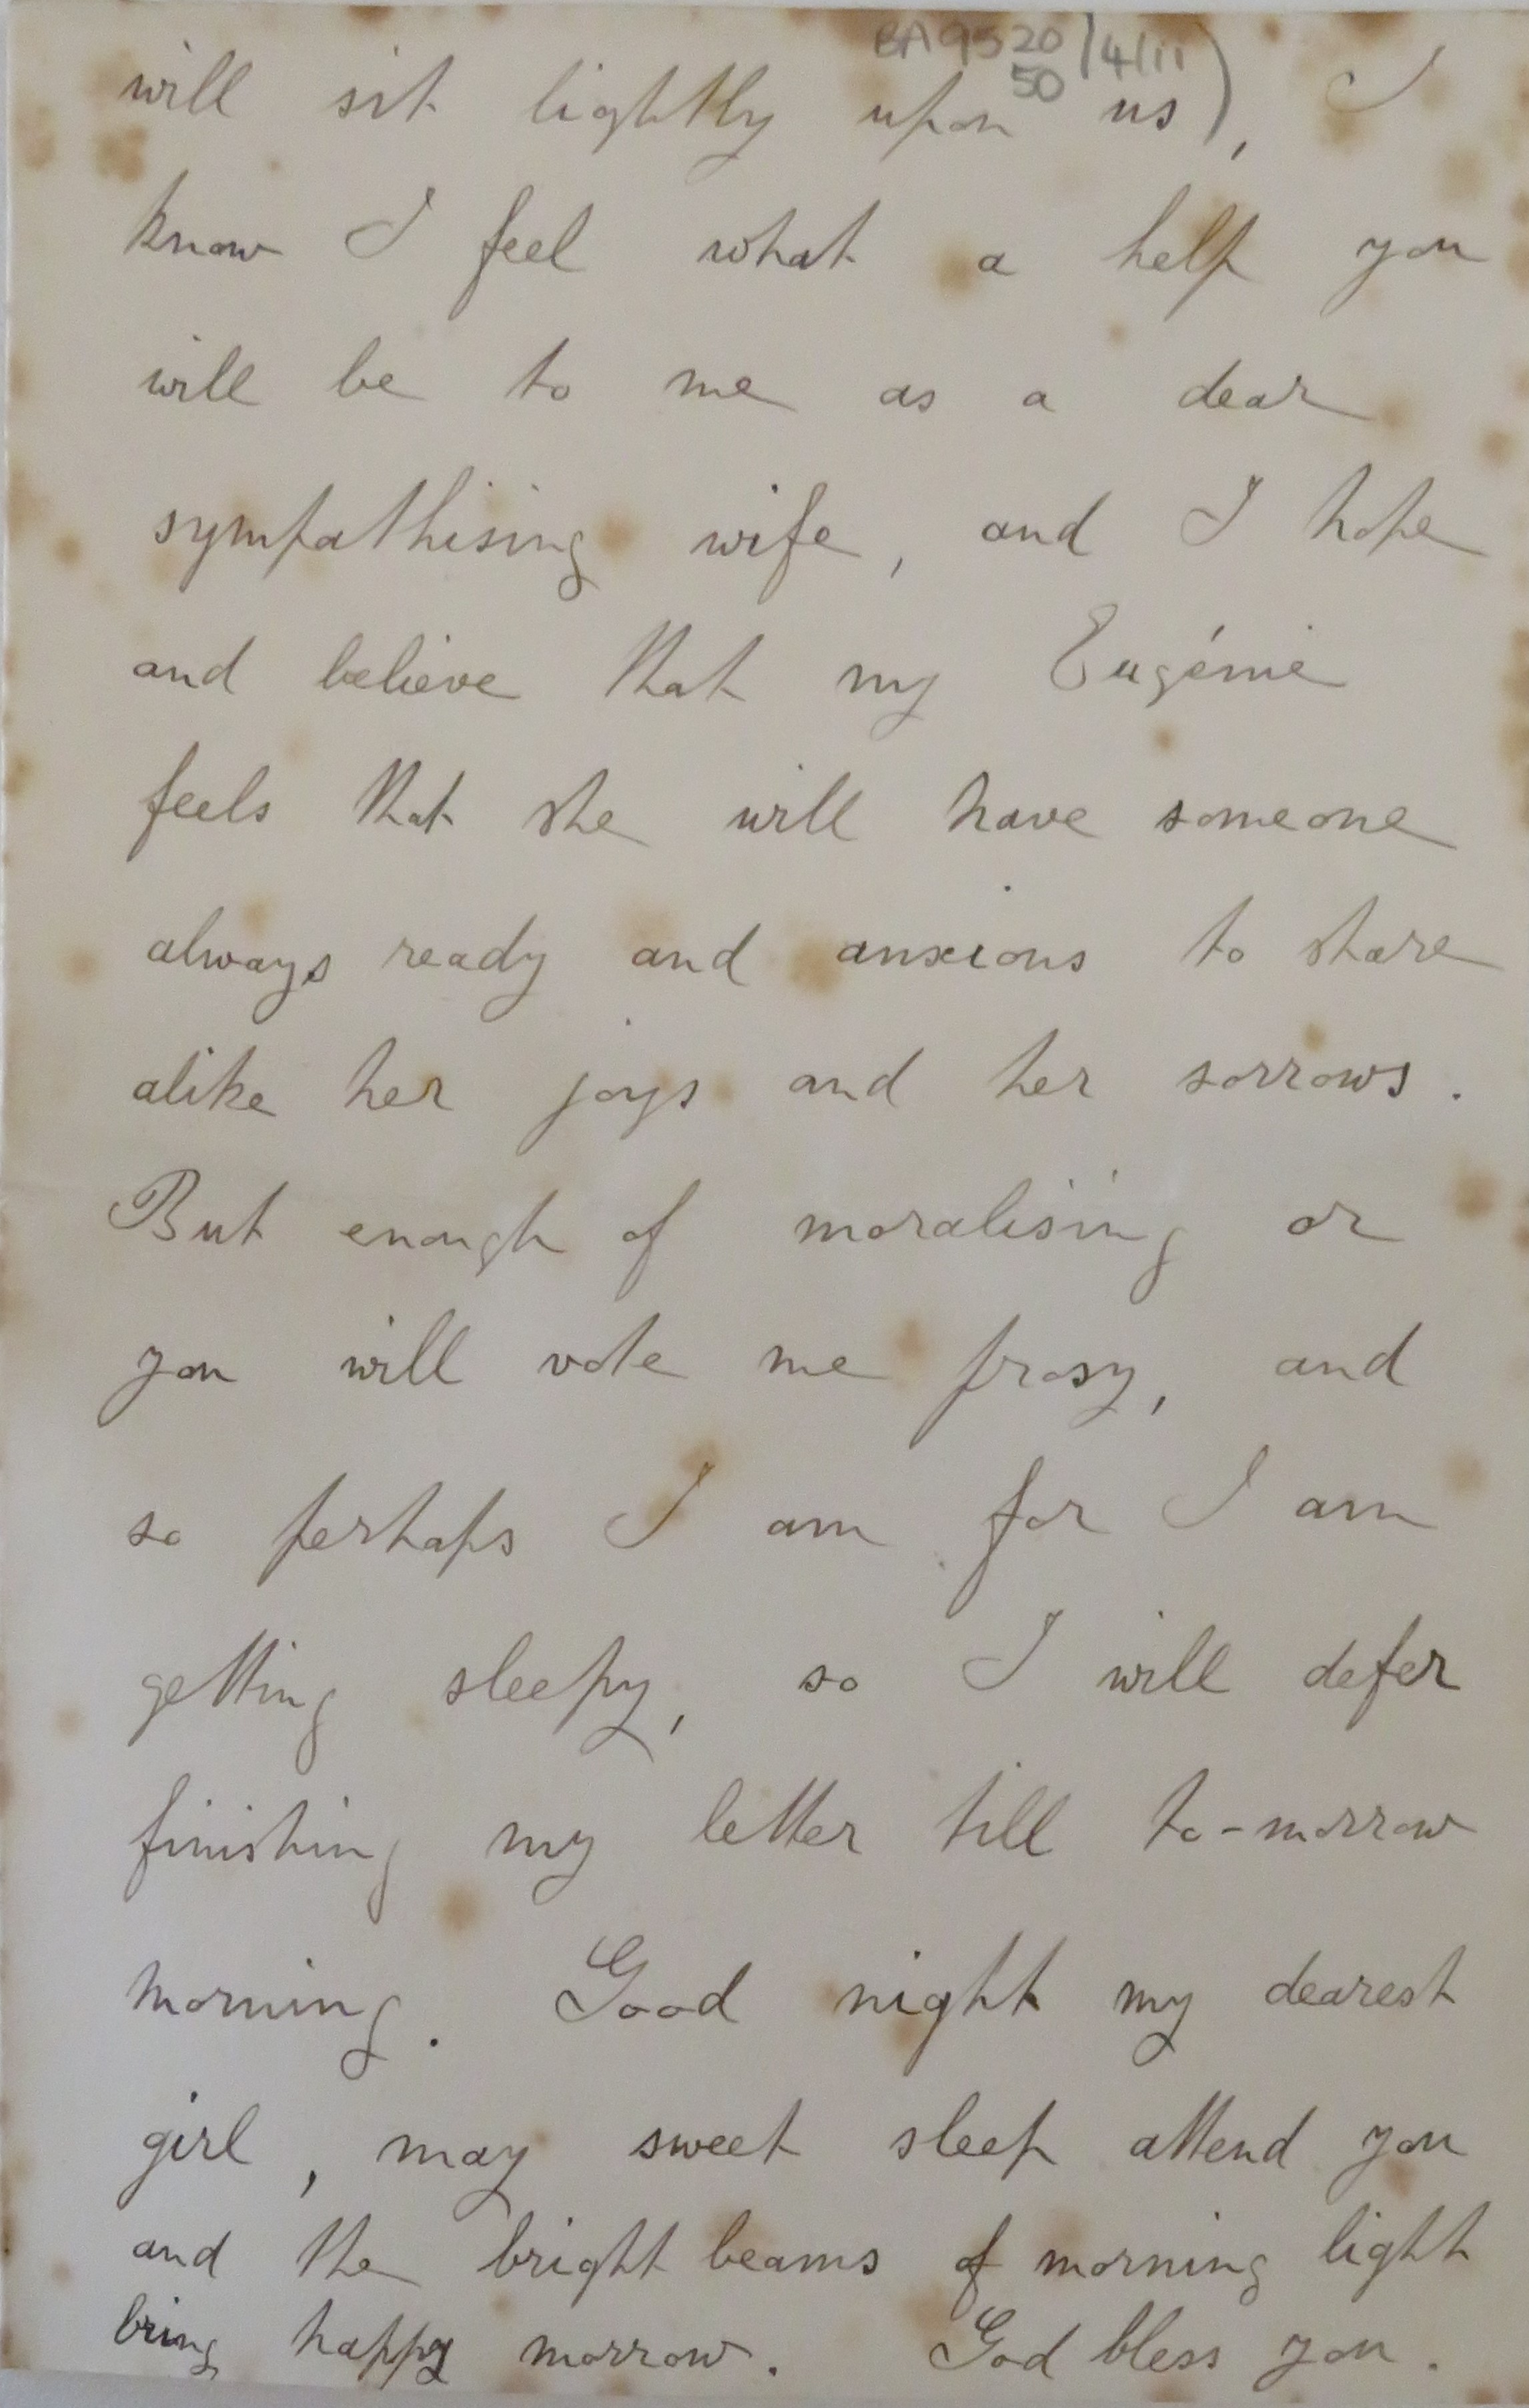 BA9520/4/11
50
will sit lightly upon us), I
know I feel what a help you
will be to me as a dear
sympathising wife, and I hope
and believe that my Eugénie
feels that she will have someone
always ready and anxious to share
alike her joys and her sorrows.
But enough of moralising or
you will vote me prosy, and
so perhaps I am for I am
getting sleepy, so I will defer
finishing my letter till to-morrow
morning. Good night my dearest
girl, may sweet sleep attend you
and the bright beams of morning light
bring happy morrow. God bless you.